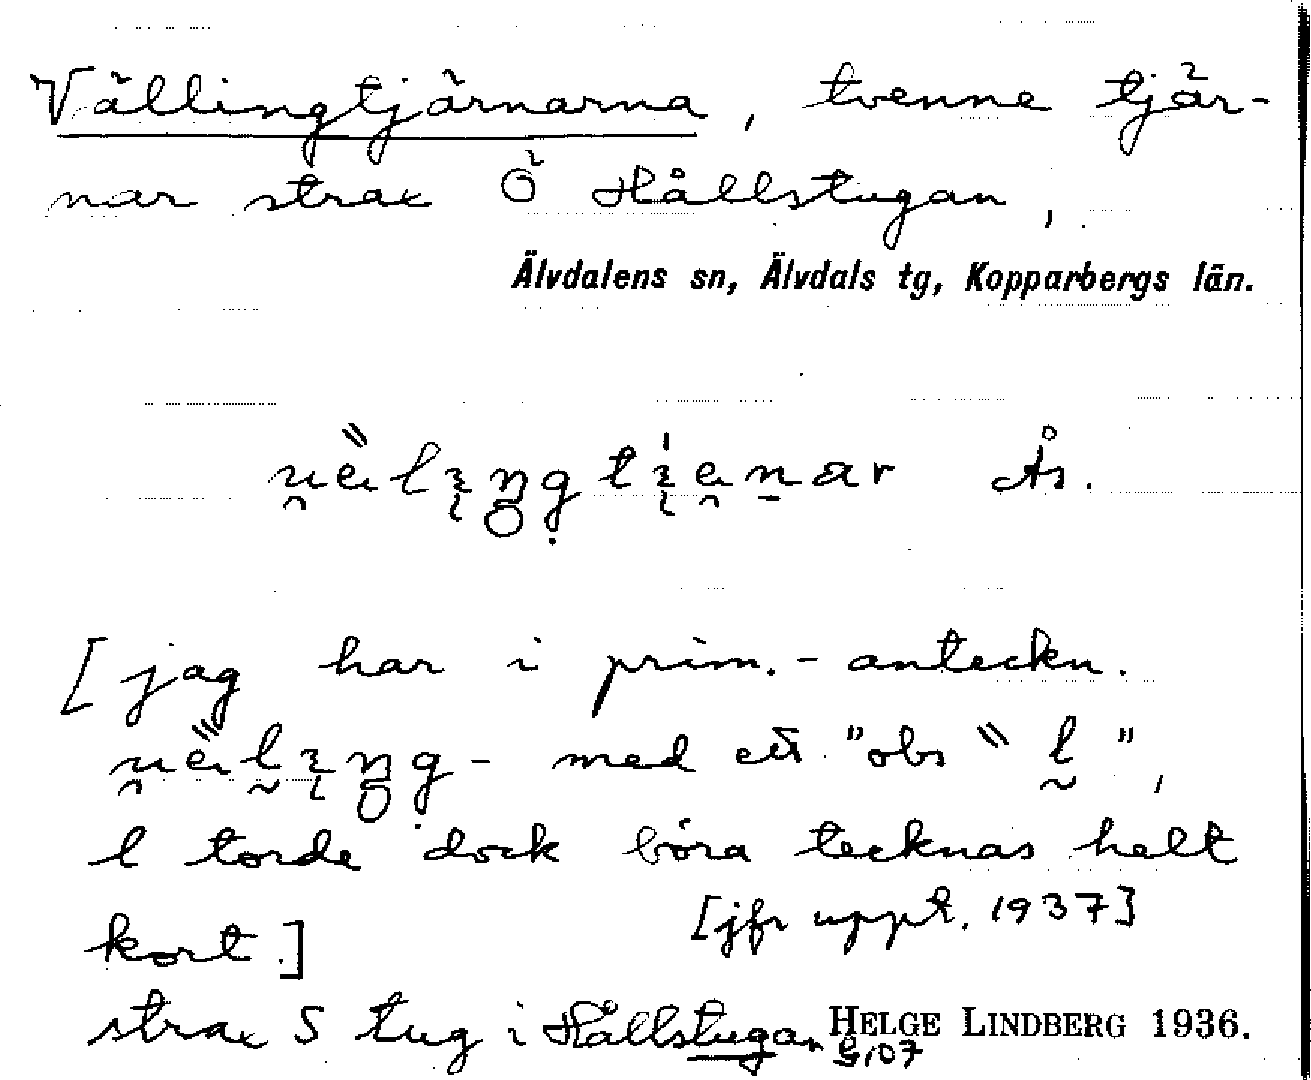 Vällingtjärnarna, tvenne tjär-
nar strax Ö Hållstugan,
Älvdalens sn, Älvdals tg, Kopparbergs län.
Ås.
[jag har i prim.-anteckn.
med ett "obs
l torde dock böra tecknas helt
kort.] [jfr uppt. 1937]
strax S tug i Hållstugan HELGE LINDBERG 1936.